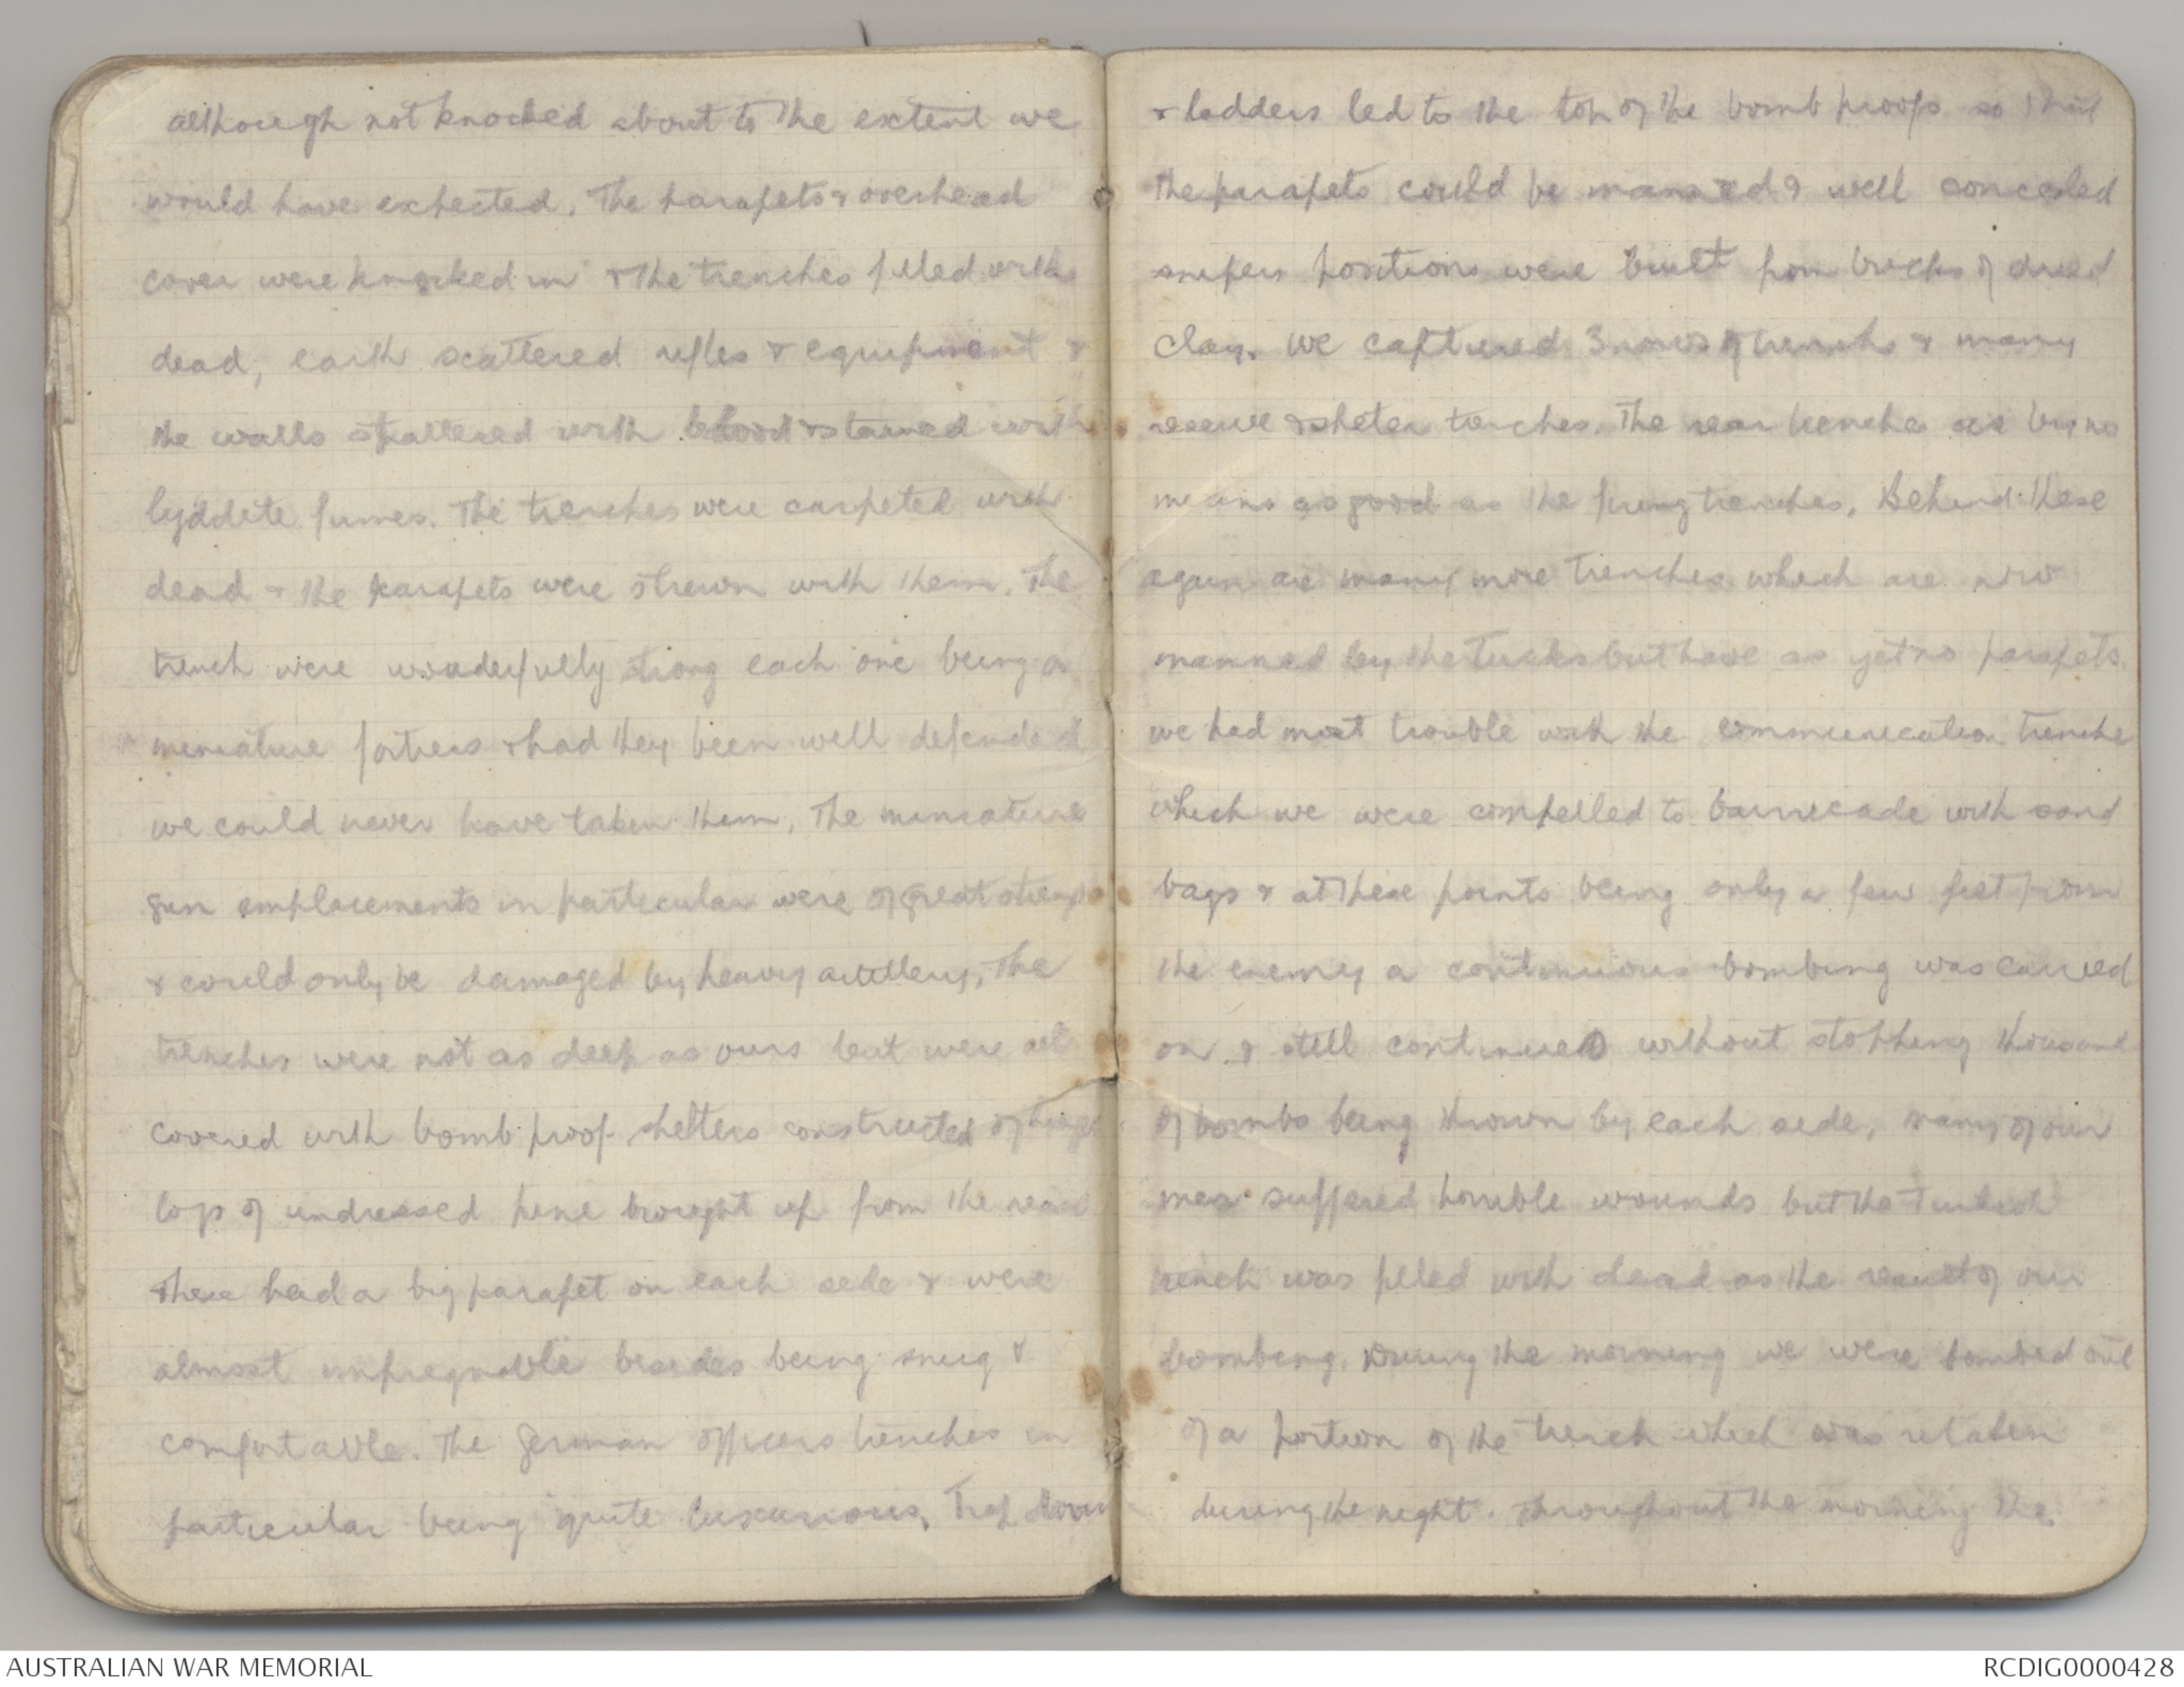 although not knocked about to the extent we
would have expected. The parapets & overhead
cover were knocked in & the trenches filled with
dead, earth scattered rifles & equipment &
the walls spattered with blood & stained with
lyddite fumes. The trenches were carpeted with
dead & the parapets were strewn with them. The
trench were wonderfully strong each one being a
miniature fortress & had they been well defended
we could never have taken them. The miniature
gun emplacements in particular were of great
& could only be damaged by heavy artillery, The
trenches were not as deep as ours but were all
covered with bomb proof shelters constructed of huge
logs of undressed pine brought up from the rear
these had a big parapet on each side & were
almost impregnable besides being snug &
comfortable. The German officers trenches in
particular being quite luxurious, Trap doors
& ladders led to the top of the bomb proofs so that
the parapets could be manned & well concealed
snipers positions were built from bricks of dried
clay. We captured 3 rows of trenchs & many
reserve & shelter trenches. The rear trenches are by no
means as good as the firing trenches. Behind these
again are many more trenches which are now
manned by the Turks but have as yet no parapets
we had most trouble with the communication trenche
which we were compelled to barricade with sand
bags & at these points being only a few feet from
the enemy a continuous bombing was carried
on & still continued without stopping thousand
of bombs being thrown by each side, many of our
men suffered horrible wounds but the Turkish
trench was filled with dead as the result of our
bombing. During the morning we were bombed out
of a portion of the trench which was retaken
during the night. Throughout the morning the
AUSTRALIAN WAR MEMORIAL
RCDIG0000428